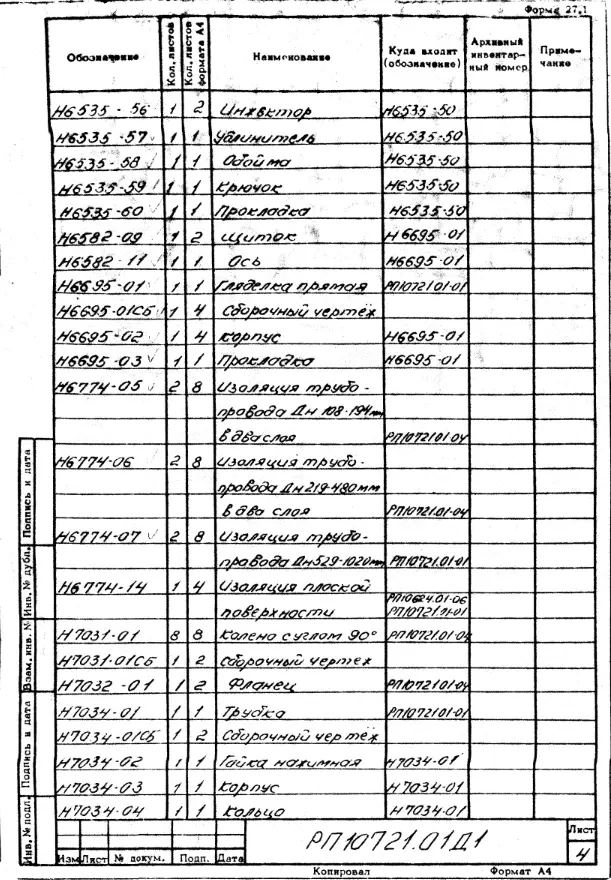 Форма 27.1
Обозначение Кол. листов Кол. листов формата А4 Наименование Куда входит (обозначение) Архивный инвентарный номер Примечание
Н6535 - 56 1 2 Инжектор Н6535-50
Н6535-57 1 1 Удлинитель Н6535-50
Н6535-58 1 1 Обойма Н6535-50
Н6535-59 1 1 Крючок Н6535-50
Н6535-60 1 1 Прокладка Н6535-50
Н6582-09 1 2 Щиток Н6695-01
Н6582-11 1 1 Ось Н6695-01
Н6695-01 1 1 Гляделка прямая РП10721.01-01
Н6695-01СБ 1 4 Сборочный чертёж
Н6695-02 1 4 Корпус Н6695-01
Н6695-03 1 1 Прокладка Н6695-01
Н6774-05 2 8 Изоляция трубо-
провода Дн 108-194мм
в два слоя РП10721.01-04
Н6774-06 2 8 Изоляция трубо-
провода Дн219-480мм
в два слоя РП10721.01-04
Н6774-07 2 8 Изоляция трубо-
провода Дн529-1020мм РП10721.01-01
Н6774-14 1 4 Изоляция плоской
РП10624.01-06
поверхности РП10721.01-01
Н7031-01 8 8 Колено с углом 90° РП10721.01-04
Н7031-01СБ 1 2 Сборочный чертеж
Н7032-01 1 2 Фланец РП10721.01-04
Н7034-01 1 1 Трубка РП10721.01-01
Н7034-01СБ 1 2 Сборочный чертёж
Н7034-02 1 1 Гайка нажимная Н7034-01
Н7034-03 1 1 Корпус Н7034-01
Н7034-04 1 1 Кольцо Н7034-01
Инв. № подл. Подпись и дата Взам. инв. № Инв. № дубл. Подпись и дата
РП10721.01Д1
Лист
4
Изм Лист № докум. Подп. Дата
Копировал Формат А4